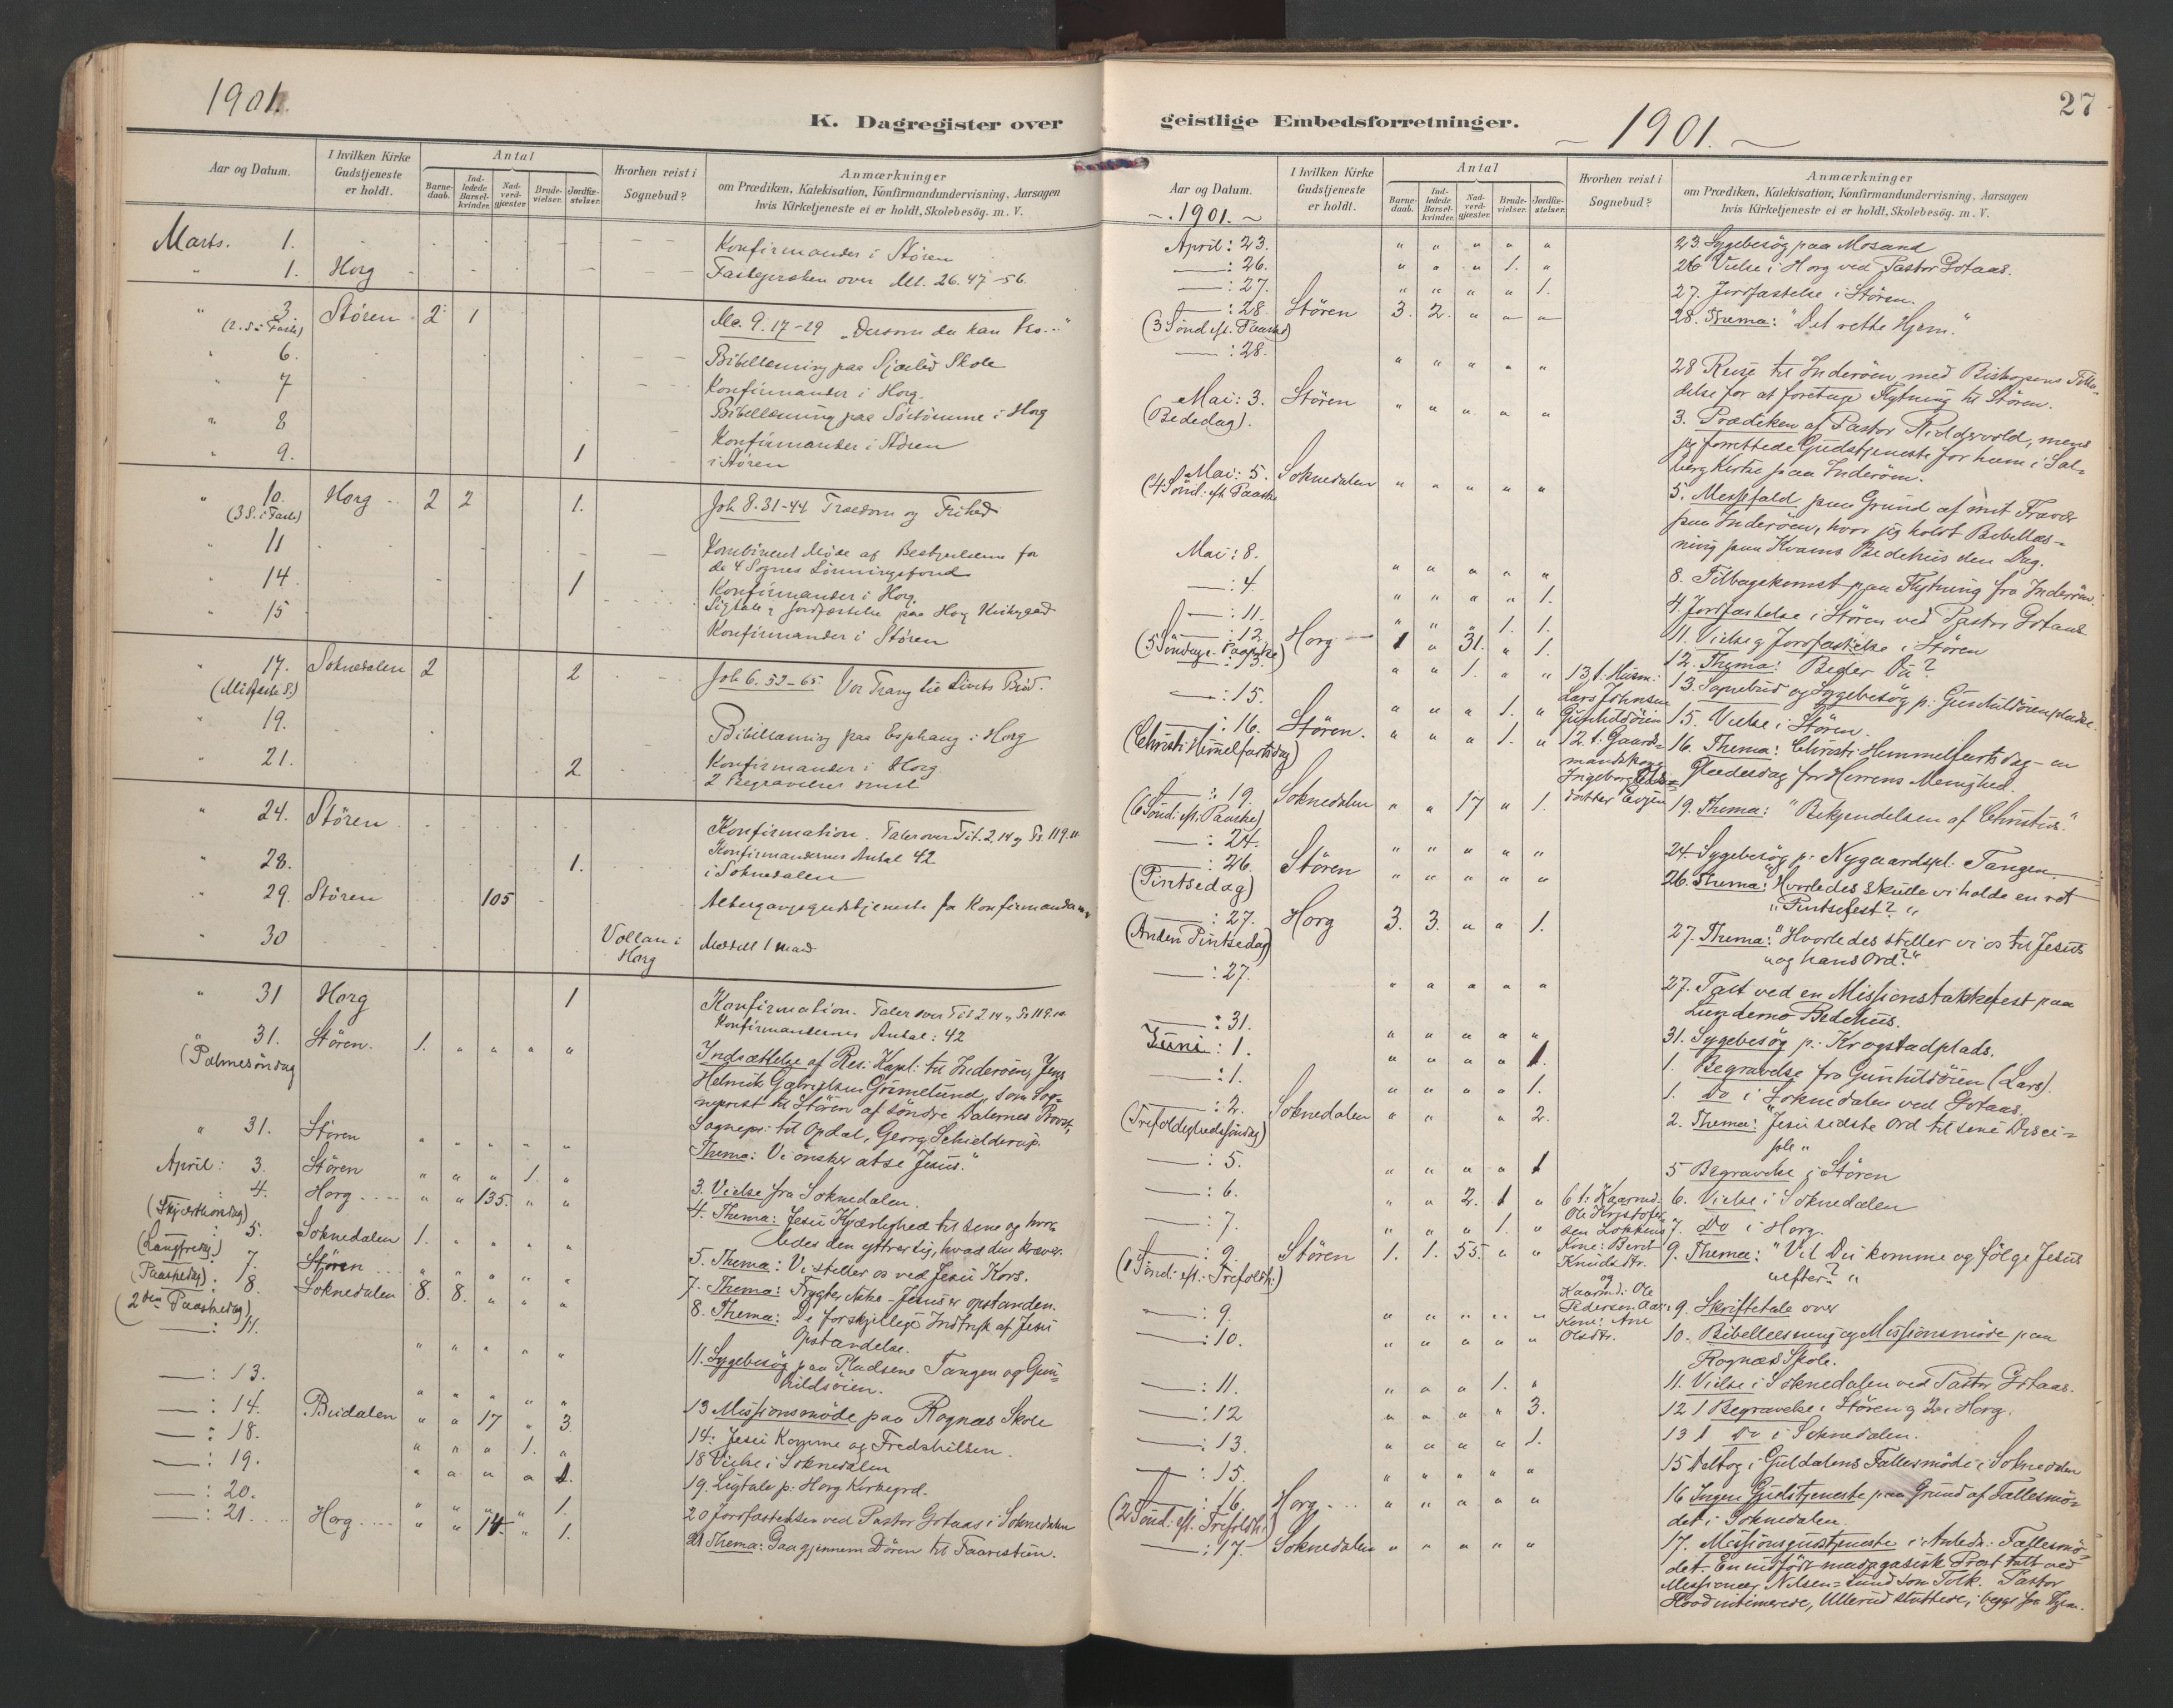 1901.
K. Dagregister over
Aar og Datum.
I hvilken Kirke Gudstjeneste er holdt.
Antal
Barne-daab.
Ind-ledede Barsel-kvinder.
Nad-verd-gjæster.
Brude-vielser.
Jordfæ-stelser.
Hvorhen reist i Sognebud?
Anmærkninger
om Prædiken, Katekisation, Konfirmandundervisning, Aarsagen
hvis Kirketjeneste ei er holdt, Skolebesøg. m. V.
Marts. 1. Konfirmander i Stören
" 1. Horg Fastepræken over Mt. 26.47-56.
" 3. Stören 2 1 Mc. 9.17-29 "Dersom du kan tro..."
(2. S. i Faste)
" 6. Bibellæsning paa Skole
" 7 Konfirmander i Horg.
" 8 Bibellæsning paa i Horg
" 9. 1 Konfirmander i Stören
i Stören
" 10. Horg 2 2 1. Joh 8.31-44 Trældom og Frihed
(3 S. i Faste)
" 11 Kombineret Møde af Bestyrelserne for
de 4 Sognes Lønningsfond
" 14. 1 Konfirmander i Horg.
Ligtale & Jordfæstelse paa Horg Kirkegaard
" 15 Konfirmander i Stören
" 17. Soknedalen 2 2 Joh 6. 52-65 Vor Trang til Livets Brød.
(Midfaste S.)
" 19. Bibellæsning paa Esphaug i Horg
" 21. 2 Konfirmander i Horg.
2 Begravelser smst
" 24. Stören Konfirmation. Taler over Tit. 2,14 og Ps. 119.11
Konfirmandernes Antal 42
" 28. 1. i Soknedalen
" 29. Stören 105 Altergangsgudstjeneste for Konfirmanderne
" 30 Vollan i
Horg
" 31 Horg 1 Konfirmation. Taler over Tit 2.14 & Ps 119.10
Konfirmandernes Antal: 42
" 31. Stören. 1. " " " " Indsættelse af Res: Kapl: til Inderöen, Jens
(Palmesöndag) Helmik Gabrielsen Grimelund, som Sog-
neprest til Stören af Söndre Dalernes Provst,
Sognepr: til Opdal, Georg Schielderup.
" 31. Stören " " " " " Thema: Vi önsker at se Jesus."
April: 3. Stören " " " 1. " 3. Vielse fra Soknedalen.
: 4. Horg " " 135. " " 4. Thema: Jesu Kjærlighed til sine og hvor-
(Skjærthorsdag) ledes den yttrer sig, hvad den kræver.
: 5. Soknedalen 1. " " " " 5. Thema: Vi steller os ved Jesu Kors.
(Langfredag)
: 7. Stören " " " " " 7. Thema: Frygter ikke - Jesus er opstanden.
(Paaskedag)
: 8. Soknedalen 8. 8. " " " 8. Thema: De forskjellige Indtryk af Jesu
(2den Paaskedag) Opstandelse.
— : 11. " " " " " 11. Sygebesög paa Pladsene Tangen og Gun-
hildsöien.
— : 13. " " " " " 13 Missionsmöde paa Rognæs Skole
— : 14. Budalen " " 17 " 3. 14: Jesu Komme og Fredshilsen.
— : 18. " " " 1. " 18 Vielse i Soknedalen
— : 19. " " " " 1. 19. Ligtale p: Horg Kirkegrd.
— : 20. " " " " 1. 20 Jordfæstelsen ved Pastor Gotaas i Soknedalen
— : 21. Horg " " 14. " 1. 21 Thema: Gaa gjennem Dören til Faarestien.
27
geistlige Embedsforretninger.
- 1901. -
Aar og Datum.
I hvilken Kirke Gudstjeneste er holdt.
Antal
Barne-daab.
Ind-ledede Barsel-kvinder.
Nad-verd-gjæster.
Brude-vielser.
Jordfæ-stelser.
Hvorhen reist i Sognebud?
Anmærkninger
om Prædiken, Katekisation, Konfirmandundervisning, Aarsagen
hvis Kirketjeneste ei er holdt, Skolebesög. m. V.
-. 1901. -
April: 23. " " " " " 23. Sygebesög paa Mosand
— : 26. " " " 1. " 26 Vielse i Horg ved Pastor Gotaas.
— : 27. " " " " 1. 27. Jordfæstelse i Stören.
— : 28. Stören 3. 2. " " " 28. Thema: "Det rette Hjem."
(3 Sönd. eft. Paaske)
— : 28. " " " " " 28 Reise til Inderöen med Biskopens Tilla-
delse for at foretage Flytning til Stören.
Mai: 3. Stören " " " " " 3. Prædiken af Pastor Riddervold, mens
(Bededag). jeg forrettede Gudstjeneste for ham i Sal-
berg Kirke paa Inderöen.
Mai: 5. Soknedalen " " " " " 5. Messefald paa Grund af mit Fravær
(4 Sönd. eft Paaske paa Inderöen, hvor jeg holdt Bibellæs-
ning paa Kvams Bedehus den Dag.
Mai: 8. " " " " " 8. Tilbagekomst paa Flytning fra Inderöen.
— : 4. " " " " 1. 4. Jordfæstelse i Stören ved Pastor Gotaas
— : 11. " " " 1. 1. 11. Vielse & Jordfæstelse i Stören
— : 12. Horg 1 " 31. " 1. 12. Thema: Beder Du?
(5 Söndag e. Paaske)
— : 13. " " 1. " " 13 t: Husm: Lars Johnsen Gunhildöien 13. Sognebud og Sygebesög p: Gunhildöienpladse.
— : 15. " " " 1. " 15. Vielse i Stören.
— : 16. Stören. " " " 1. " 12. t: Gaard- mandskone Ingeborg datter Evjen 16. Thema: Christi Himmelfartsdag - en
(Christi Himmelfartsdag) Glædesdag for Herrens Menighed.
— : 19. Soknedalen " " 17 " 1. 19. Thema: "Bekjendelsen af Christus."
(6 Sönd: eft: Paaske)
— : 24. " " " " " 24. Sygebesög p: Nygaardspl. Tangen.
— : 26. Stören " " " " " 26. Thema: "Hvorledes skulle vi holde en ret
(Pintsedag) "Pintsefest?"
— : 27. Horg 3. 3. " " 1. 27. Thema: "Hvorledes stiller vi os til Jesus
(Anden Pintsedag) "og hans Ord?"
— : 27. " " " " " 27. Talt ved en Missionstakkefest paa
Lundemo Bedehus.
— : 31. " " " " " 31. Sygebesög p: Krogstadplads.
Juni: 1. " " " " 1. 1. Begravelse fra Gunhildöien (Lars).
— : 1. " " " " 1. 1. Do i Soknedalen ved Gotaas.
— : 2. Soknedalen " " " " 2. 2. Thema: "Jesu sidste Ord til sine Disci-
(Trefoldighedssöndag) ple"
— : 5. " " " " 1 5 Begravelse i Stören
— : 6. " " 2. 1 " 6 t: Kaarmd. Ole Kristofersen Løkkens Kone: Berit Knudsdtr. og Kaarmd: Ole Pedersen Kone: Ane Olsdtr. 6. Vielse i Soknedalen
— : 7. " " " 1. " 7. Do i Horg.
— : 9. Stören 1. 1. 55. " " 9. Thema: "Vil Du komme og fölge Jesus
(1 Sönd: eft: Trefoldh:) efter?"
— : 9. " " " " " 9. Skriftetale over
— : 10. " " " " " 10. Bibellæsning og Missionsmöde paa
Rognæs Skole.
— : 11. " " " 1. " 11. Vielse i Soknedalen ved Pastor Gotaas.
— : 12 " " " " 3. 12 1 Begravelse i Stören & 2 i Horg.
— : 13. " " " " 1. 13 1 Do i Soknedalen.
— : 15. " " " " " 15 Deltog i Guldalens Fællesmöde i Soknedalen
— : 16. Horg " " " " " 16 Ingen Gudstjeneste paa Grund af Fællesmö-
(2 Sönd: eft. Trefoldh:) det i Soknedalen.
— : 17. Soknedalen " " " " " 17. Missionsgudstjeneste i Anledn. Fællesmö-
det. En indfödt madagassisk Prest talt med
Missionær Nilsen-Lund som Tolk. Pastor
Flood intimerede, Ullerud sluttede,